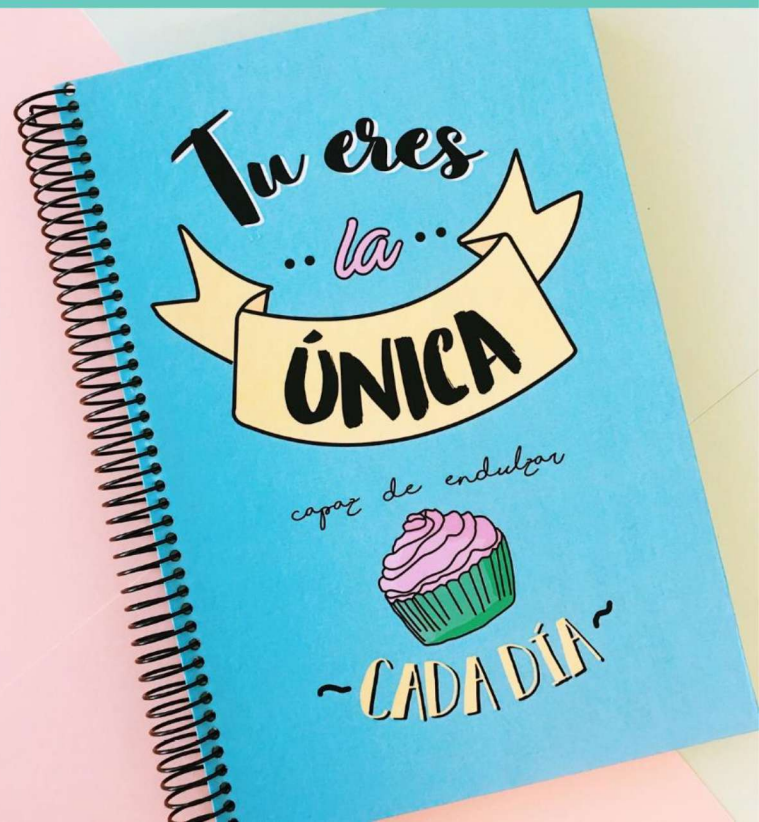 Tu eres
la
ÚNICA
capaz de endulzar
~CADA DÍA~